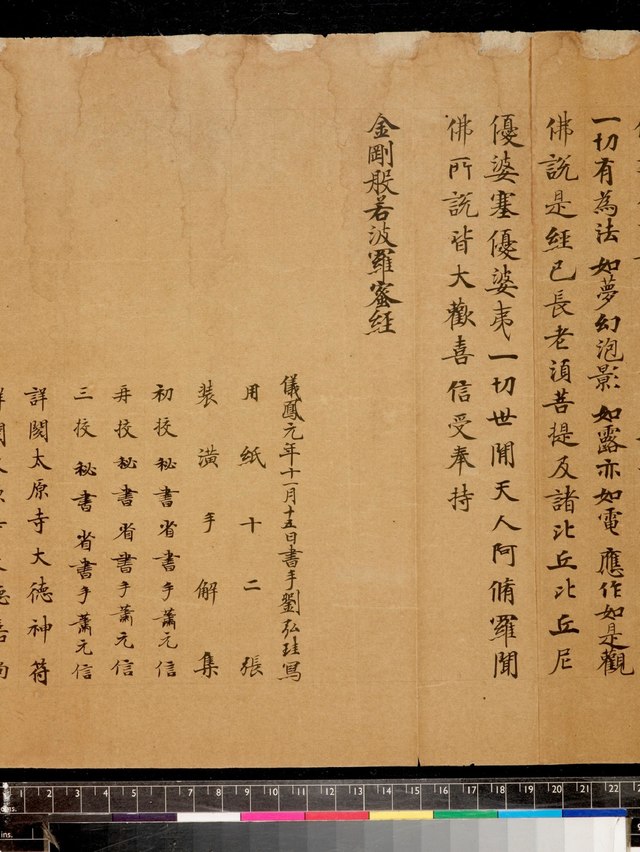 一切有為法 如夢幻泡影 如露亦如電 應作如是觀
佛說是經已長老須菩提及諸比丘比丘尼
優婆塞優婆夷一切世閒天人阿脩羅聞
佛所說皆大歡喜信受奉持
金剛般若波羅蜜經
儀鳳元年十一月十五日書手劉弘珪寫
用紙十二張
裝潢手解集
初校秘書省書手蕭元信
再校秘書省書手蕭元信
三校秘書省書手蕭元信
詳閱太原寺大德神符
1 2 3 4 5 7 8 9 10 11 12 13 14 15 16 17 18 19 20 21 22
ins.